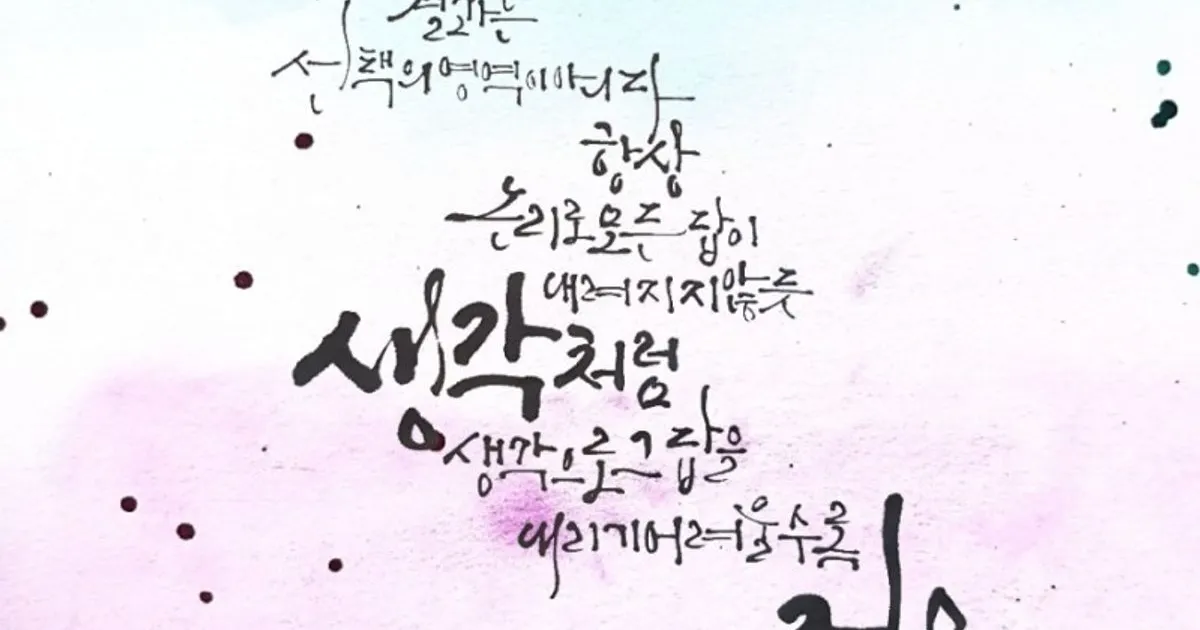 선책의영역이아니라
항상
논리로모든 답이
내려지지않듯
생각처럼
생각으로그답을
내리기어려울수록